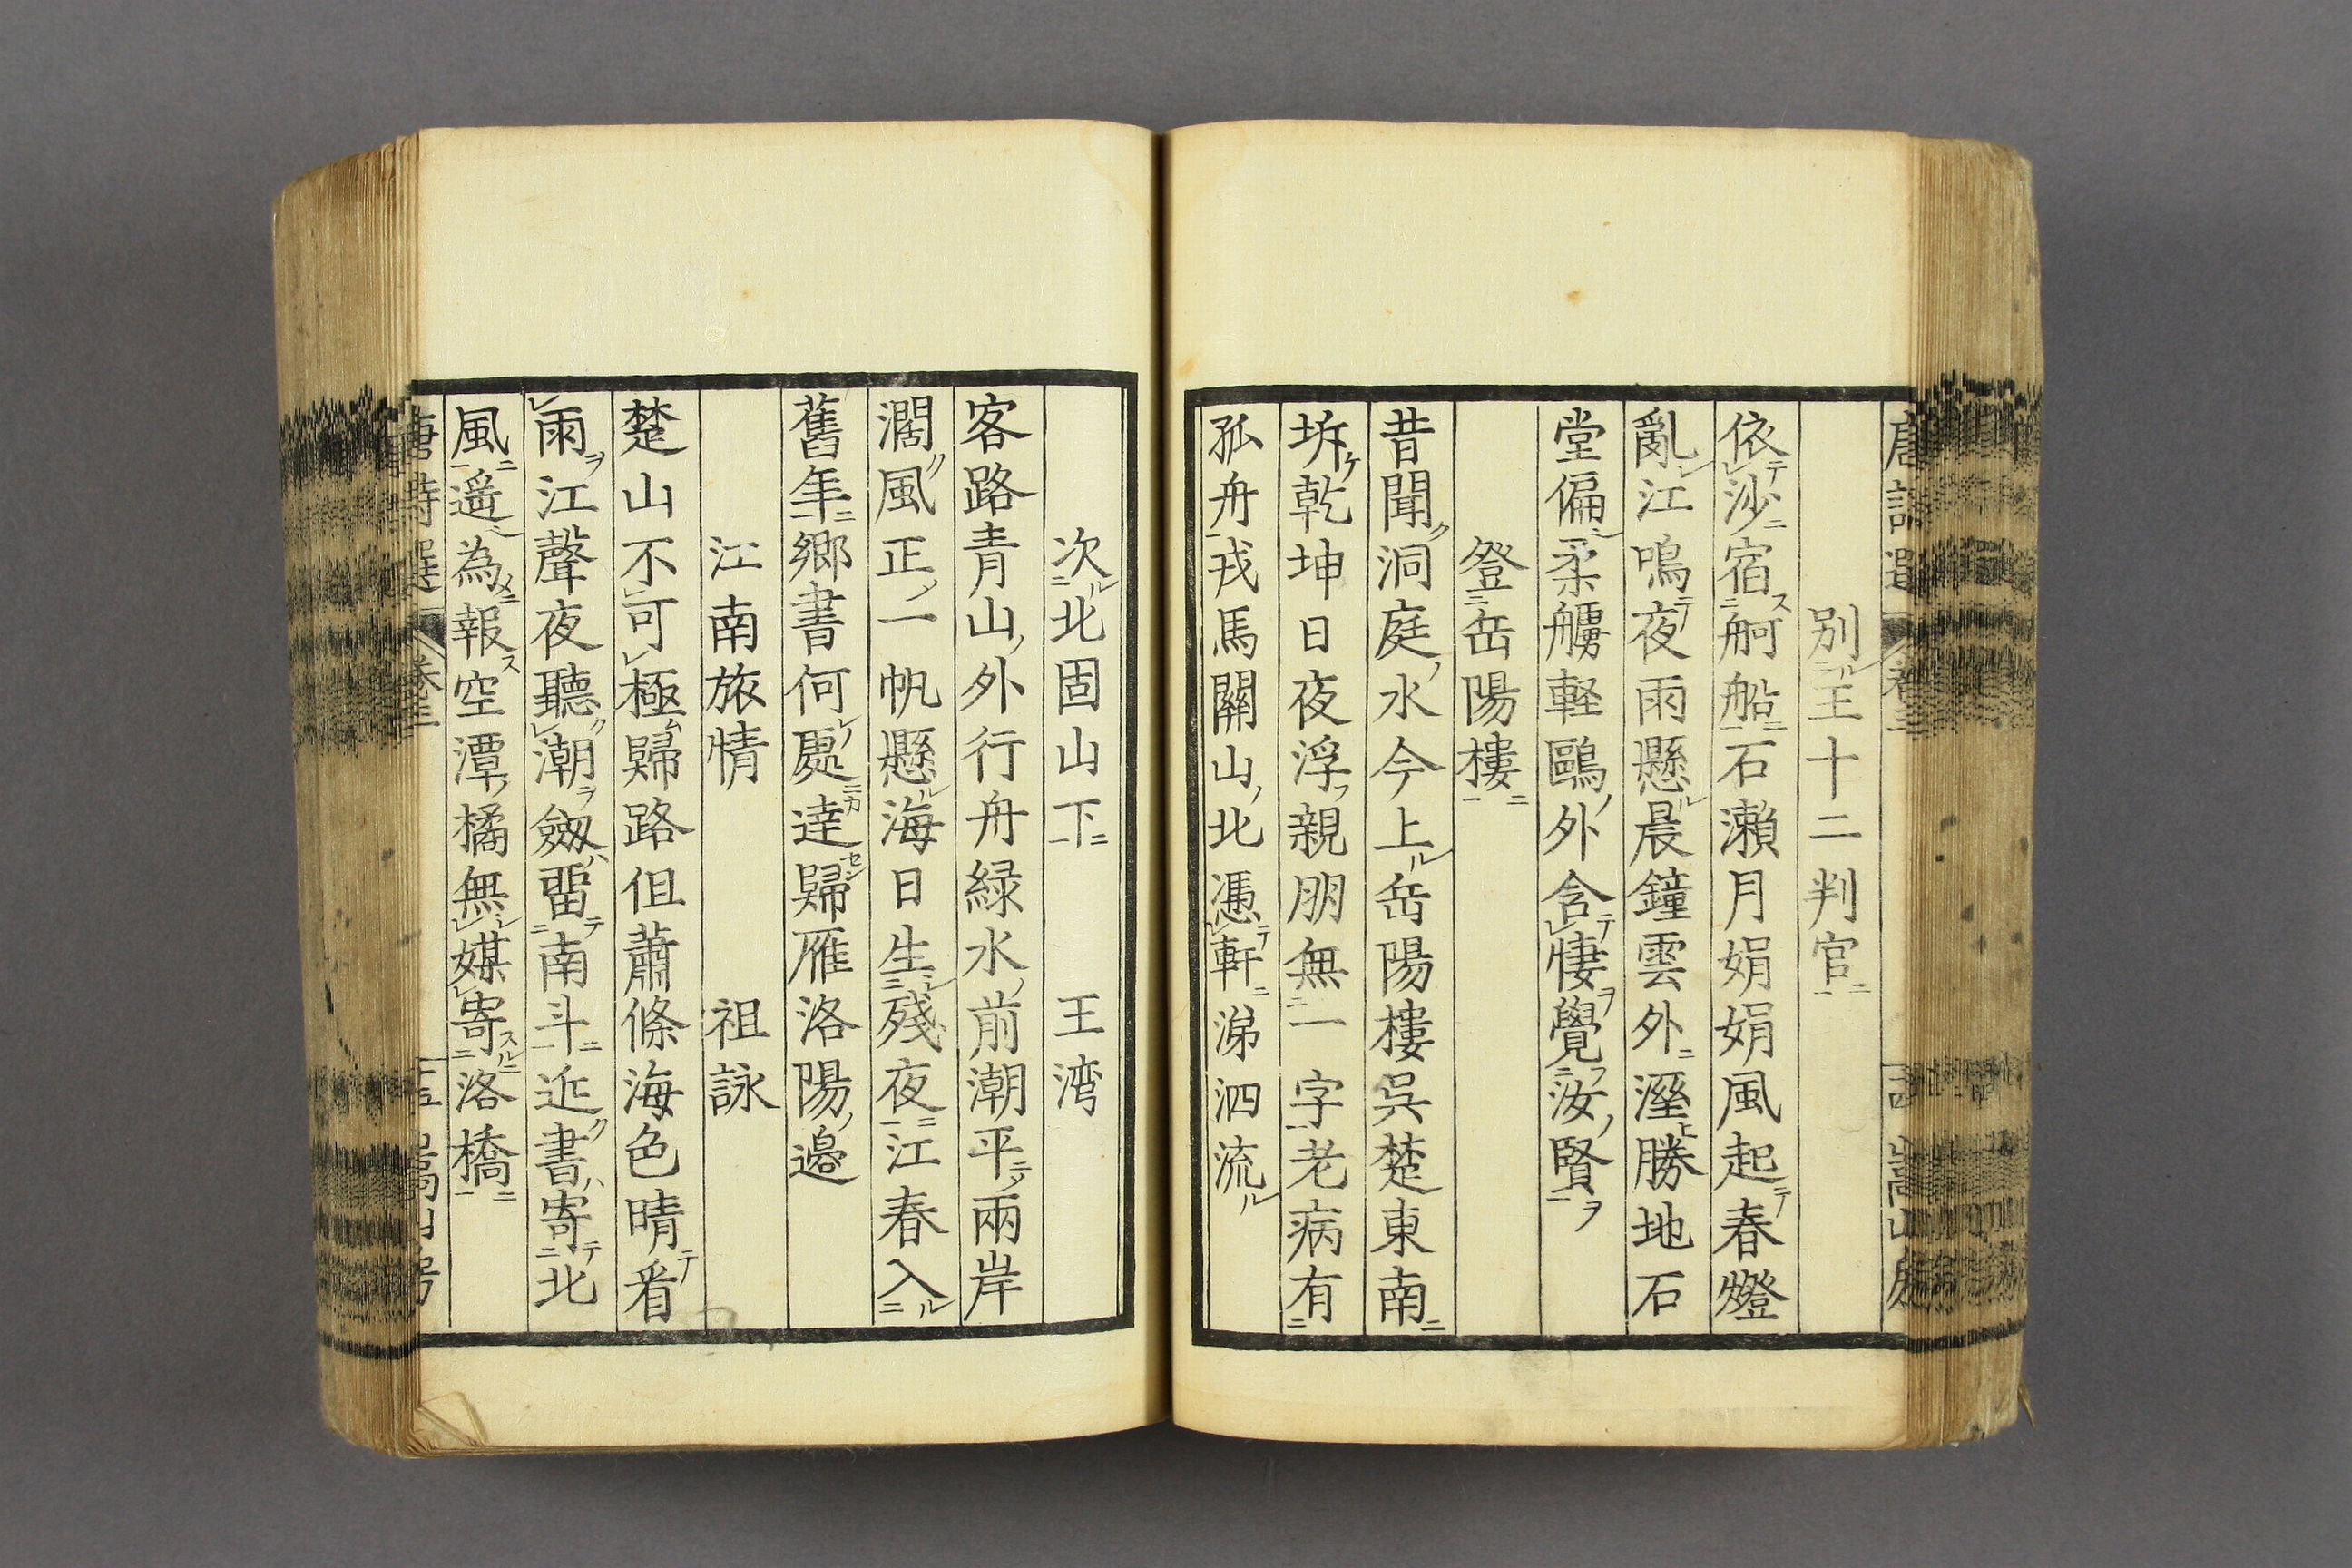 別王十二判官
依沙宿舸船石瀨月娟娟風起春燈
亂江鳴夜雨懸晨鐘雲外溼勝地石
堂偏柔艣軽鷗外含悽覺汝賢
登岳陽樓
昔聞洞庭水今上岳陽樓呉楚東南
坼乾坤日夜浮親朋無一字老病有
孤舟戎馬關山北憑軒涕泗流
次北固山下 王湾
客路青山外行舟緑水前潮平兩岸
濶風正一帆懸海日生殘夜江春入
舊年鄉書何處達歸雁洛陽邊
江南旅情 祖詠
楚山不可極歸路但蕭條海色晴看
雨江聲夜聽潮劔留南斗近書寄北
風遥為報空潭橘無媒寄洛橋